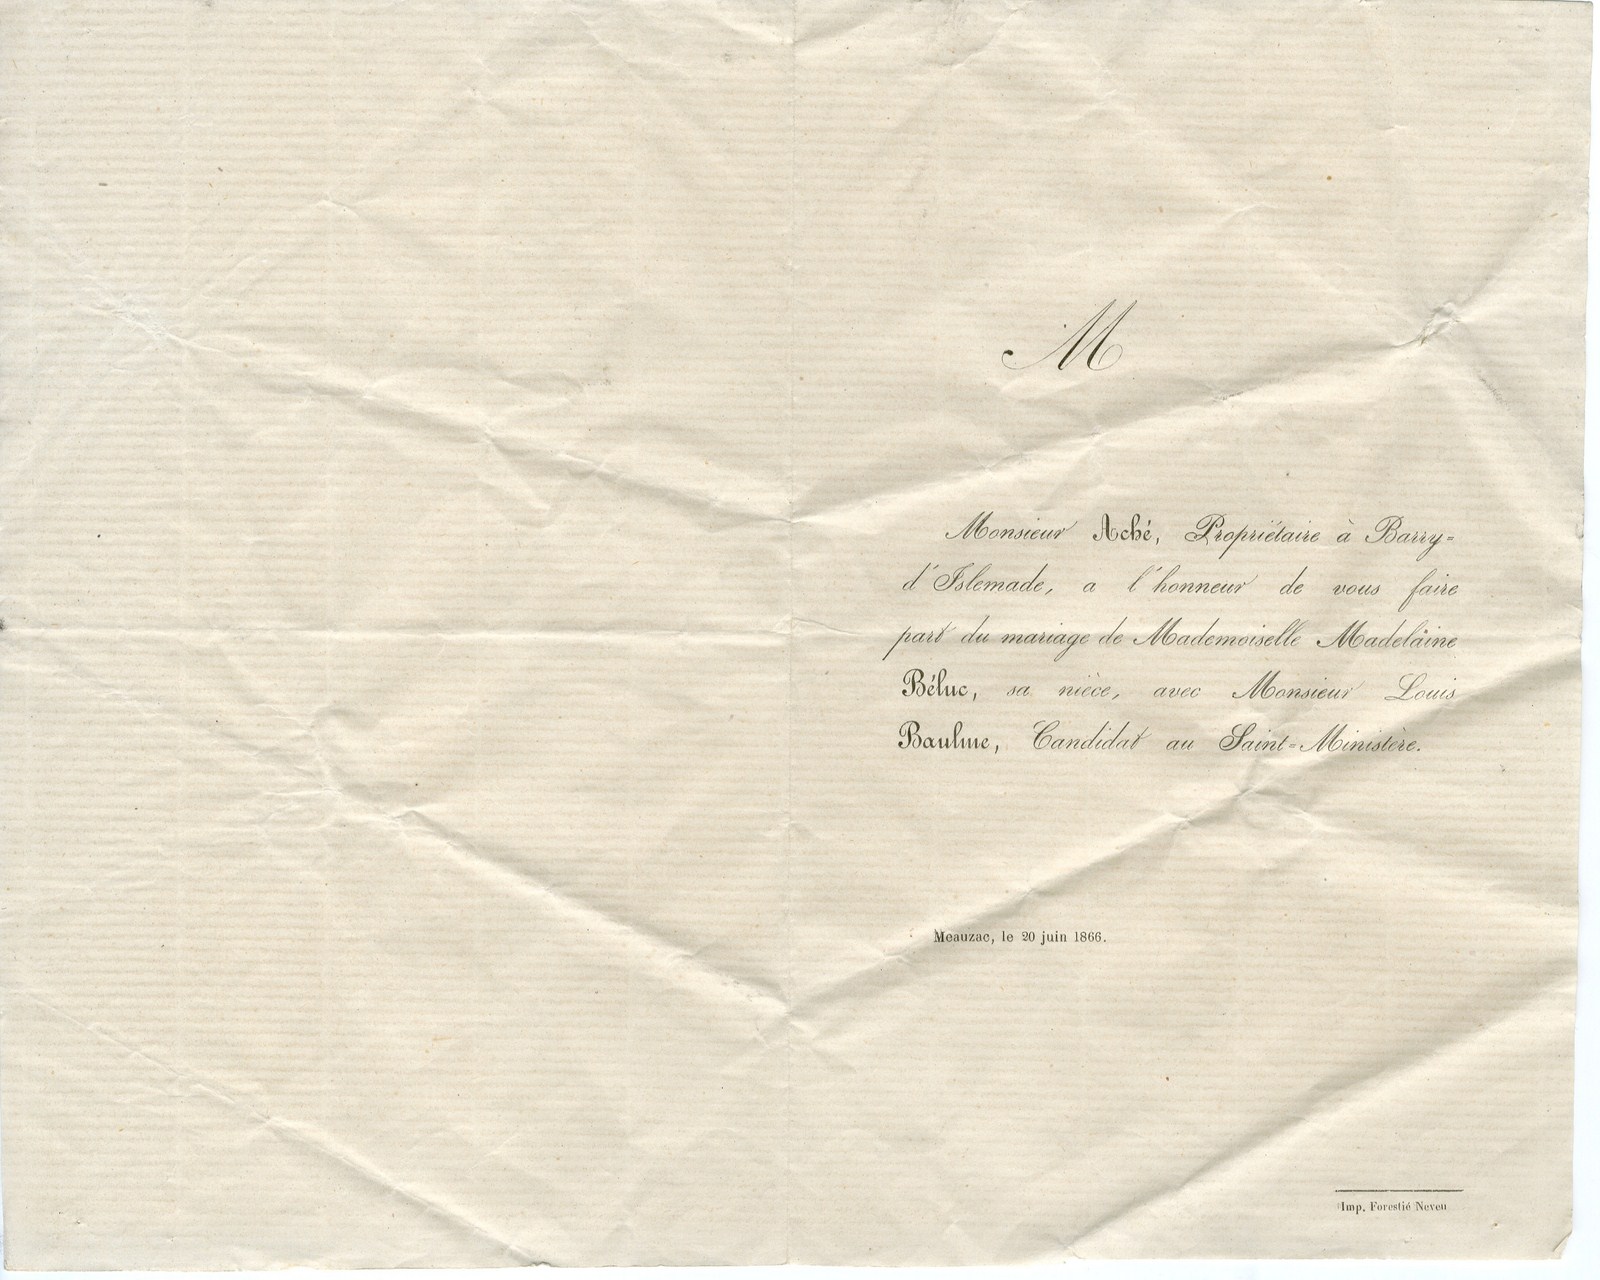 M
Monsieur Aché, Propriétaire à Barry-
d'Islemade, a l'honneur de vous faire
part du mariage de Mademoiselle Madelaine
Béluc, sa nièce, avec Monsieur Louis
Baulme, Candidat au Saint-Ministère.
Meauzac, le 20 juin 1866.
Imp. Forestié Neveu